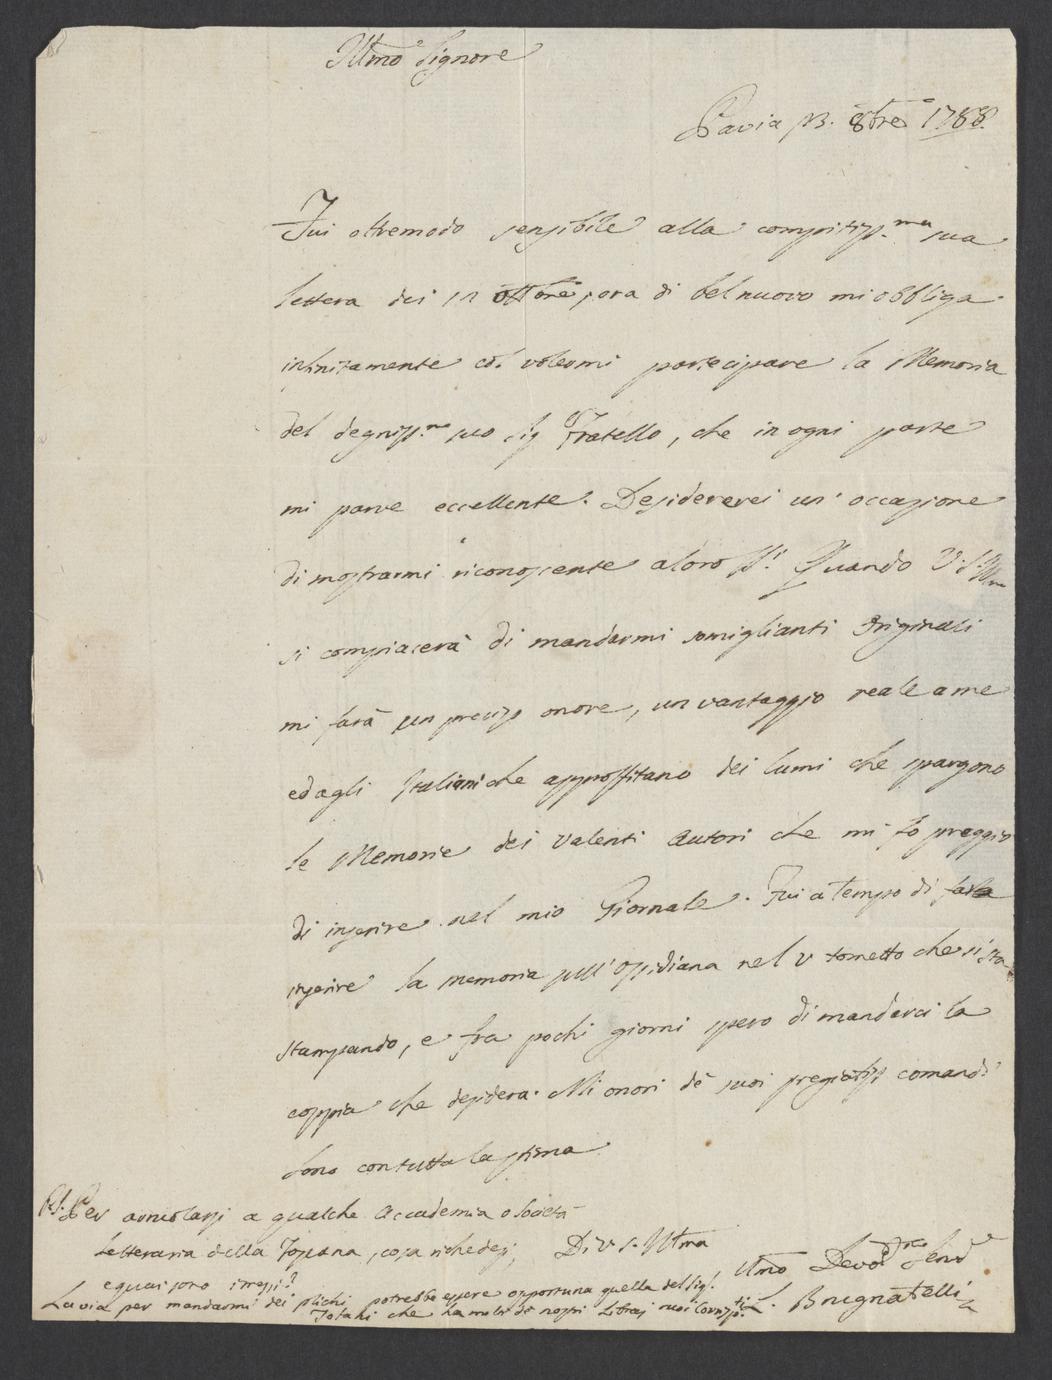 Illmo Signore
Pavia 13. 8bre 1788.
Fui oltremodo sensibile alla compitiss.ma sua
lettera dei 12 ottobre, ora di bel nuovo mi obbliga
infinitamente col volermi partecipare la Memoria
del degniss.mo suo Sig Fratello, che in ogni parte
mi parve eccellente. Desidererei un' occasione
di mostrarmi riconoscente a loro SS.i Quando V.S. Illma
si compiacerà di mandarmi somiglianti originali
mi farà un onore, un vantaggio reale a me
ed agli Italiani che approffitano dei lumi che spargono
le Memorie dei valenti Autori che mi fo preggio
di inserire nel mio Giornale. Fui a tempo di farla
inserire la memoria sull' Ossidiana nel V tometto che si sta
stampando, e fra pochi giorni spero di mandarci la
coppia che desidera. Mi onori de' suoi pregiatiss comandi
Sono con tutta la stima
Di V. S. Illma
Umo Devo Serv
L. Brugnatelli
PS. Per arruolarsi a qualche Accademia o Società
Letteraria della Toscana, cosa richiedesi,
e quai sono i mezzi?
La via per mandarmi dei plichi potrebbe essere opportuna quella del Sig.
che ha molti de nostri Libraj suoi